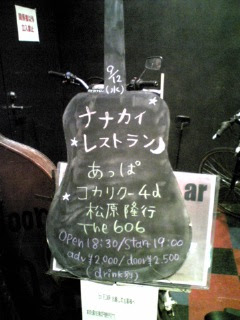 9/12
(水)
ナナカイ
レストラン
あっぱ
コカリクー4d
松原隆行
The 606
open 18:30/Start 19:00
adv ¥2,000/door ¥2,500
(drink別)
ar